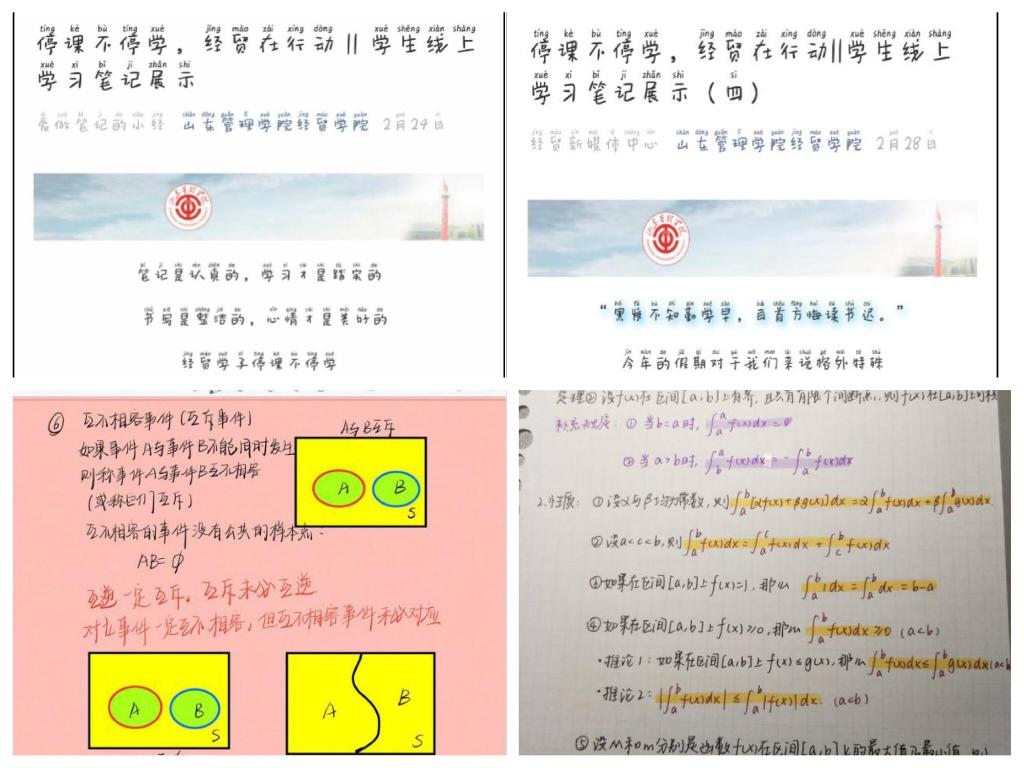 停课不停学，经贸在行动||学生线上
学习笔记展示
爱做笔记的小经 山东管理学院经贸学院 2月24日
笔记是认真的，学习才是踏实的
书写是整洁的，心情才是美好的
经贸学子停课不停学
停课不停学，经贸在行动||学生线上
学习笔记展示（四）
经贸新媒体中心 山东管理学院经贸学院 2月28日
“黑发不知勤学早，白首方悔读书迟。”
今年的假期对于我们来说格外特殊
⑥ 互不相容事件(互斥事件)
如果事件A与事件B不能同时发生
则称事件A与事件B互不相容
(或称它们互斥)
互不相容的事件没有公共的样本点.
AB=∅
互逆一定互斥. 互斥未必互逆
对立事件一定互不相容, 但互不相容事件未必对应
A与B互斥
A B
S
A B
S
A B
S
定理② 设f(x)在区间[a,b]上有界, 且只有有限个间断点, 则f(x)在[a,b]上可积
补充规定: ① 当b=a时, ∫ₐᵃ f(x)dx=0
② 当a>b时, ∫ₐᵇ f(x)dx=-∫ᵇₐ f(x)dx
2.性质: ①设α与β均为常数, 则∫ₐᵇ[αf(x)+βg(x)]dx=α∫ₐᵇf(x)dx+β∫ₐᵇg(x)dx.
②设a<c<b,则∫ₐᵇf(x)dx=∫ₐᶜf(x)dx+∫꜀ᵇf(x)dx
③如果在区间[a,b]上f(x)=1, 那么 ∫ₐᵇ1dx=∫ₐᵇdx=b-a
④如果在区间[a,b]上f(x)≥0,那么∫ₐᵇf(x)dx≥0 (a<b)
·推论1: 如果在区间[a,b]上f(x)≤g(x), 那么∫ₐᵇf(x)dx≤∫ₐᵇg(x)dx(a<b
·推论2: |∫ₐᵇf(x)dx|≤∫ₐᵇ|f(x)|dx. (a<b)
⑤设M和m分别是函数f(x)在区间[a,b]上的最大值及最小值, 则